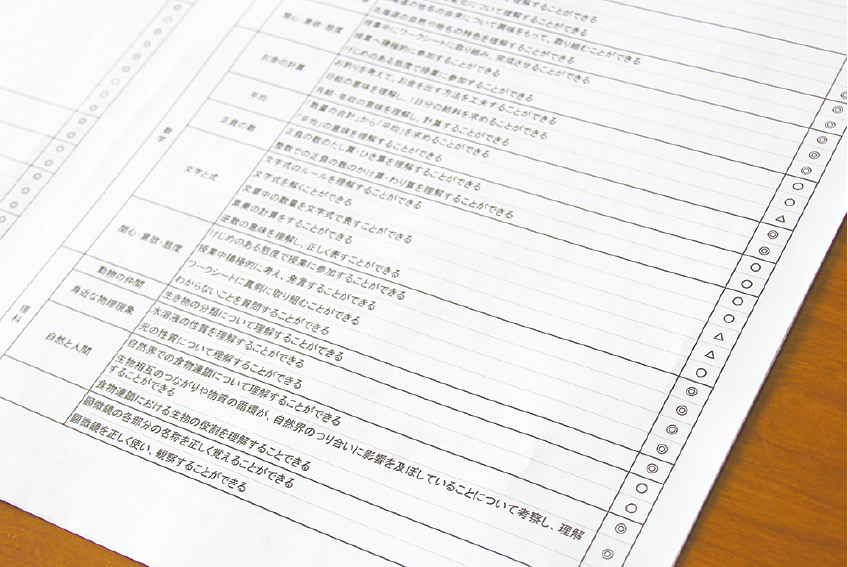 関心・意欲・態度
北海道の自然や地名の特色を理解することができる
授業中にワークシートに取り組み、完成させることができる
授業へ積極的に参加することができる
けじめのある態度で授業に参加することができる
数学
お金の計算
お釣りを考えて、お金を出す方法を工夫することができる
日給の意味を理解し、1自分の給料を求めることができる
月給・年収の意味を理解し、計算することができる
平均
「数量の合計」から「平均」を求めることができる
「平均」の意味を理解することができる
正負の数
正負の数のたし算・ひき算を理解することができる
整数での正負の数のかけ算・わり算を理解することができる
文字と式
文字式のルールを理解することができる
文字式を解くことができる
文章中の数量を文字式で表すことができる
累乗の計算をすることができる
逆数の意味を理解し、正しく表すことができる
関心・意欲・態度
けじめのある態度で授業に参加することができる
授業中積極的に考え、発言することができる
ワークシートに真剣に取り組むことができる
わからないことを質問することができる
理科
動物の仲間
生き物の分類について理解することができる
身近な物理現象
水溶液の性質を理解することができる
光の性質について理解することができる
自然と人間
自然界での食物連鎖について理解することができる
生物相互のつながりや物質の循環が、自然界のつり合いに影響を及ぼしていることについて考察し、理解
することができる
食物連鎖における生物の役割を理解することできる
顕微鏡の各部分の名称を正しく覚えることができる
顕微鏡を正しく使い、観察することができる